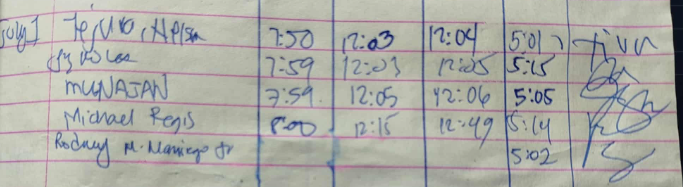 July 1 7:50 12:03 12:04 5:01
7:59 12:03 12:05 5:15
MUNAJAN 7:59 12:05 12:06 5:05
Michael Regis 8:00 12:15 12:49 5:14
Rodney M. Maniego Jr 5:02